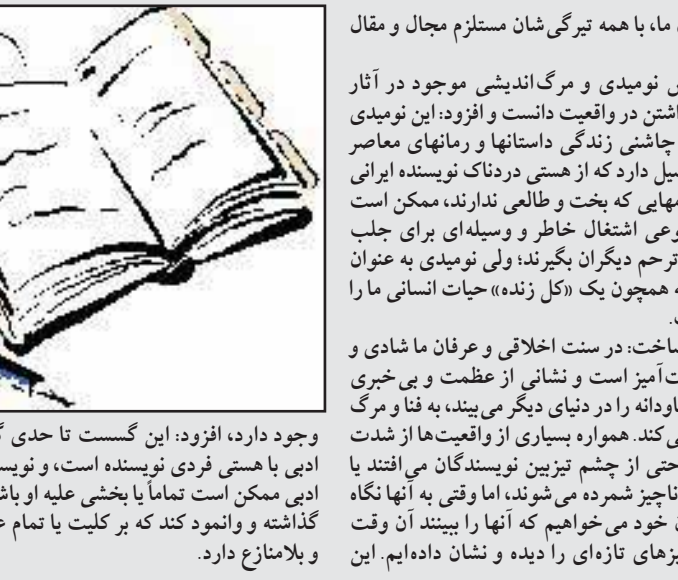 ما، با همه تیرگی‌شان مستلزم مجال و مقال
نومیدی و مرگ‌اندیشی موجود در آثار
در واقعیت دانست و افزود: این نومیدی
چاشنی زندگی داستانها و رمانهای معاصر
دارد که از هستی دردناک نویسنده ایرانی
که بخت و طالعی ندارند، ممکن است
اشتغال خاطر و وسیله‌ای برای جلب
ترحم دیگران بگیرند؛ ولی نومیدی به عنوان
همچون یک «کل زنده» حیات انسانی ما را
ساخت: در سنت اخلاقی و عرفان ما شادی و
است و نشانی از عظمت و بی‌خبری
را در دنیای دیگر می‌بیند، به فنا و مرگ
می‌کند. همواره بسیاری از واقعیت‌ها از شدت
حتی از چشم تیزبین نویسندگان می‌افتند یا
ناچیز شمرده می‌شوند، اما وقتی به آنها نگاه
خود می‌خواهیم که آنها را ببینند آن وقت
تازه‌ای را دیده و نشان داده‌ایم. این
وجود دارد، افزود: این گسست تا حدی
ادبی با هستی فردی نویسنده است، و
ادبی ممکن است تماماً یا بخشی علیه او
گذاشته و وانمود کند که بر کلیت یا تمام
و بلامنازع دارد.